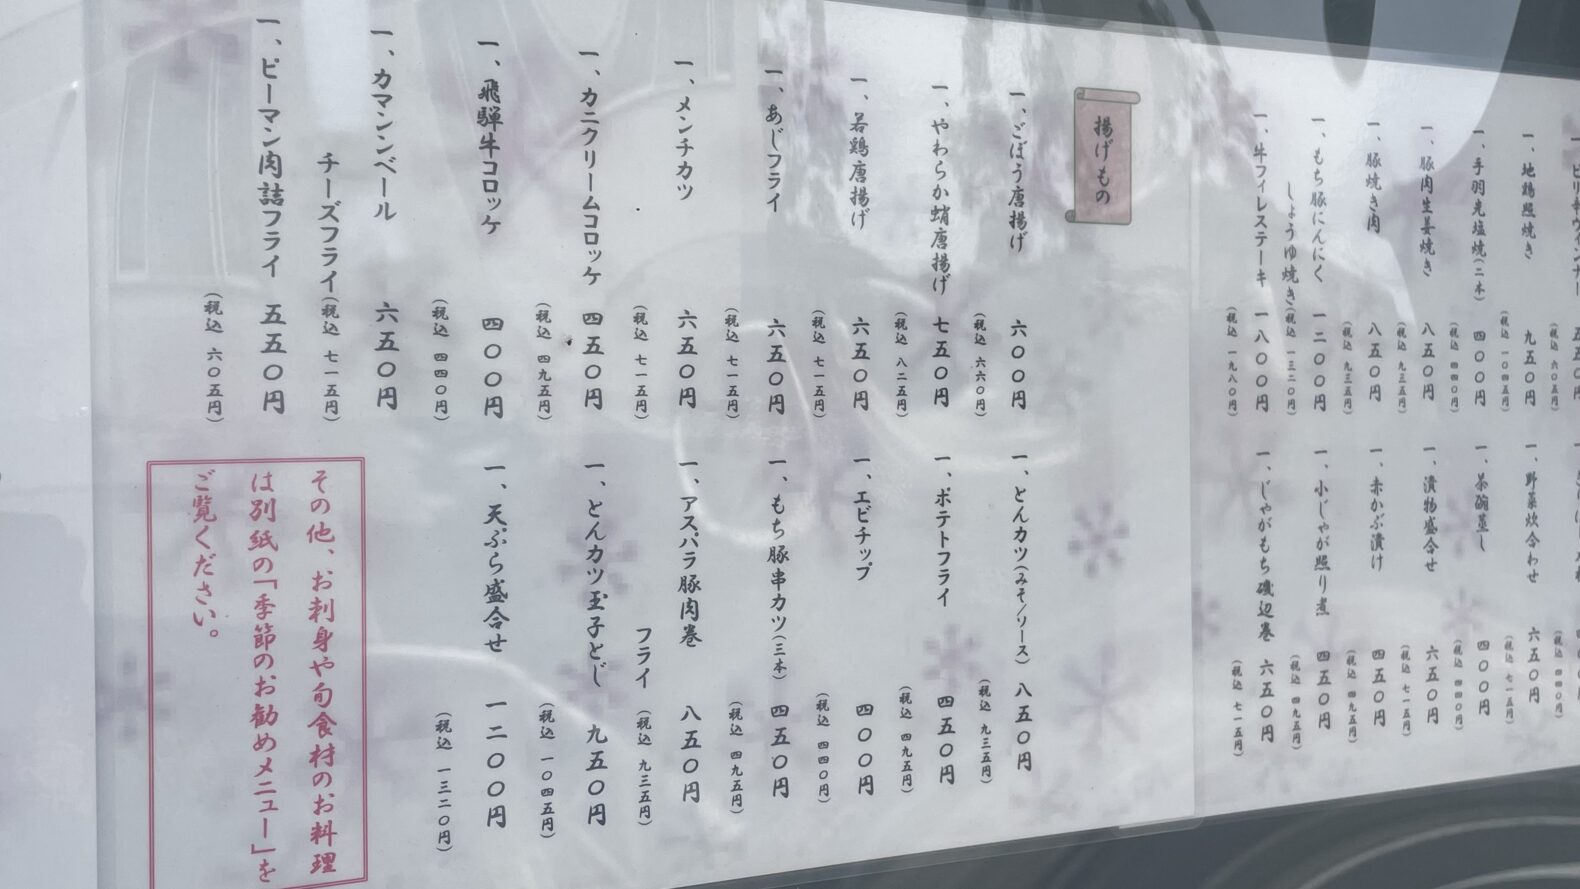 一、地鶏照焼き 九五〇円
(税込 一〇四五円)
一、手羽先塩焼(二本) 四〇〇円
(税込 四四〇円)
一、豚肉生姜焼き 八五〇円
(税込 九三五円)
一、豚焼き肉 八五〇円
(税込 九三五円)
一、もち豚にんにく
しょうゆ焼き 一二〇〇円
(税込 一三二〇円)
一、牛フィレステーキ 一八〇〇円
(税込 一九八〇円)
一、野菜炊合わせ 六五〇円
(税込 七一五円)
一、茶碗蒸し 四〇〇円
(税込 四四〇円)
一、漬物盛合せ 六五〇円
(税込 七一五円)
一、赤かぶ漬け 四五〇円
(税込 四九五円)
一、小じゃが照り煮 四五〇円
(税込 四九五円)
一、じゃがもち磯辺巻 六五〇円
(税込 七一五円)
揚げもの
一、ごぼう唐揚げ 六〇〇円
(税込 六六〇円)
一、やわらか蛸唐揚げ 七五〇円
(税込 八二五円)
一、若鶏唐揚げ 六五〇円
(税込 七一五円)
一、あじフライ 六五〇円
(税込 七一五円)
一、メンチカツ 六五〇円
(税込 七一五円)
一、カニクリームコロッケ 四五〇円
(税込 四九五円)
一、飛騨牛コロッケ 四〇〇円
(税込 四四〇円)
一、カマンンベール
チーズフライ 六五〇円
(税込 七一五円)
一、ピーマン肉詰フライ 五五〇円
(税込 六〇五円)
一、とんカツ(みそ/ソース) 八五〇円
(税込 九三五円)
一、ポテトフライ 四五〇円
(税込 四九五円)
一、エビチップ 四〇〇円
(税込 四四〇円)
一、もち豚串カツ(三本) 四五〇円
(税込 四九五円)
一、アスパラ豚肉巻
フライ 八五〇円
(税込 九三五円)
一、とんカツ玉子とじ 九五〇円
(税込 一〇四五円)
一、天ぷら盛合せ 一二〇〇円
(税込 一三二〇円)
その他、お刺身や旬食材のお料理
は別紙の「季節のお勧めメニュー」を
ご覧ください。